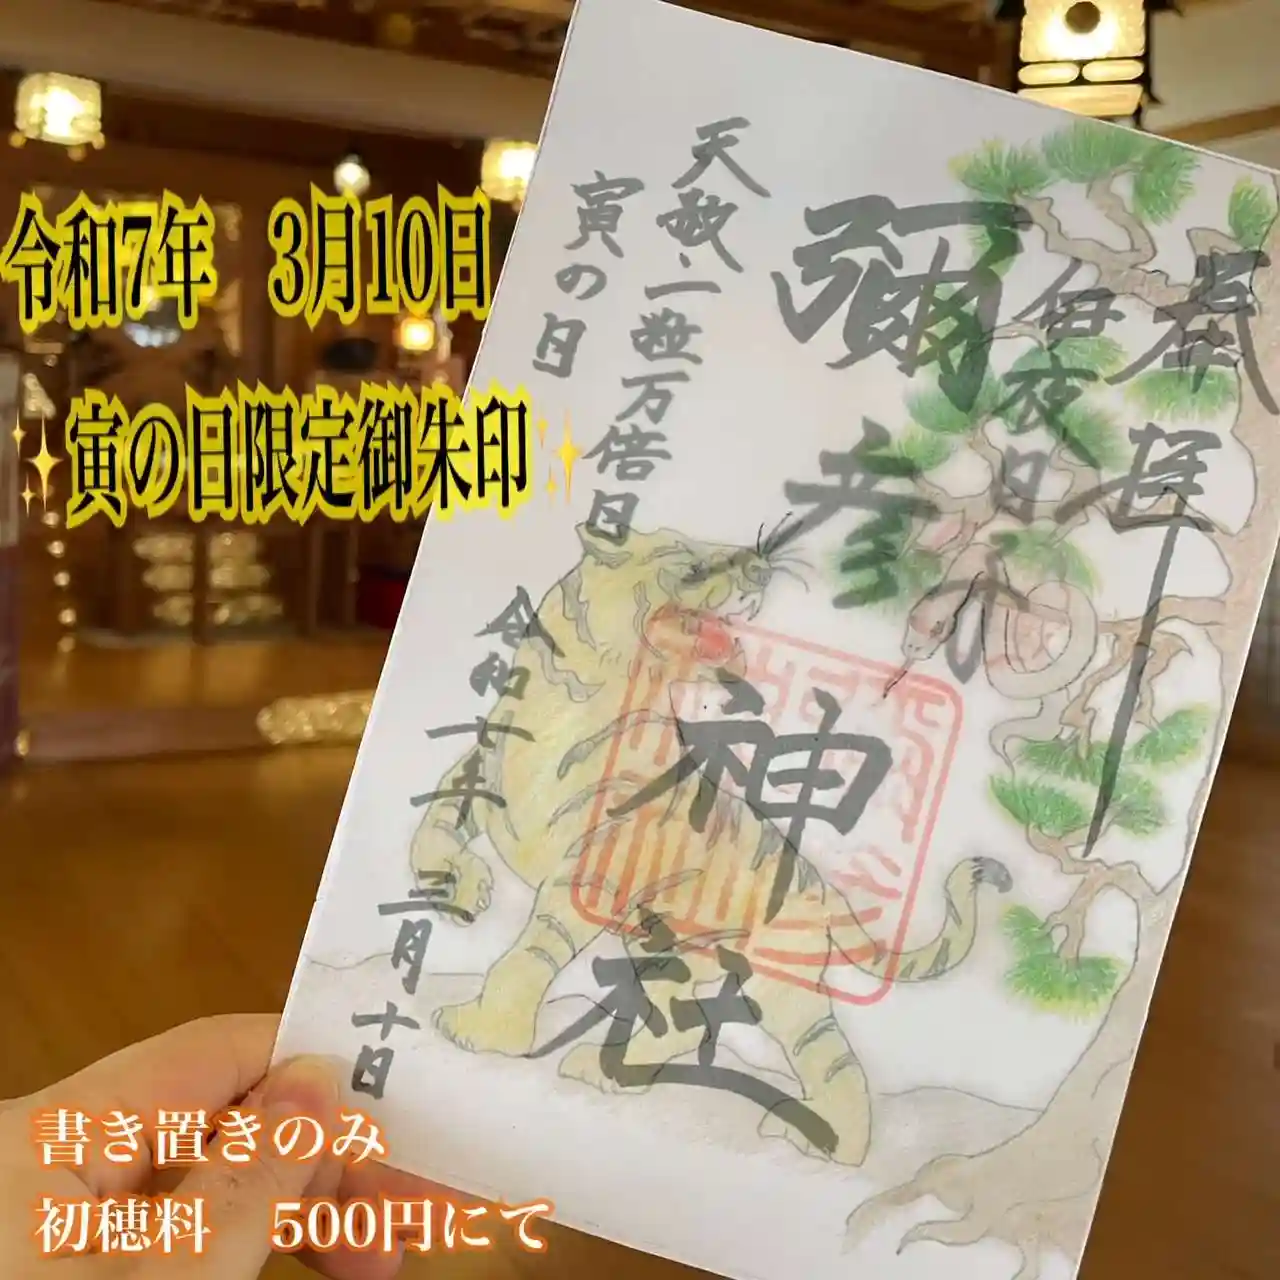 令和7年　3月10日
✨寅の日限定御朱印✨
奉拝
伊夜日子
彌彦神社
天赦、一粒万倍日
寅の日
令和七年 三月十日
書き置きのみ
初穂料　500円にて